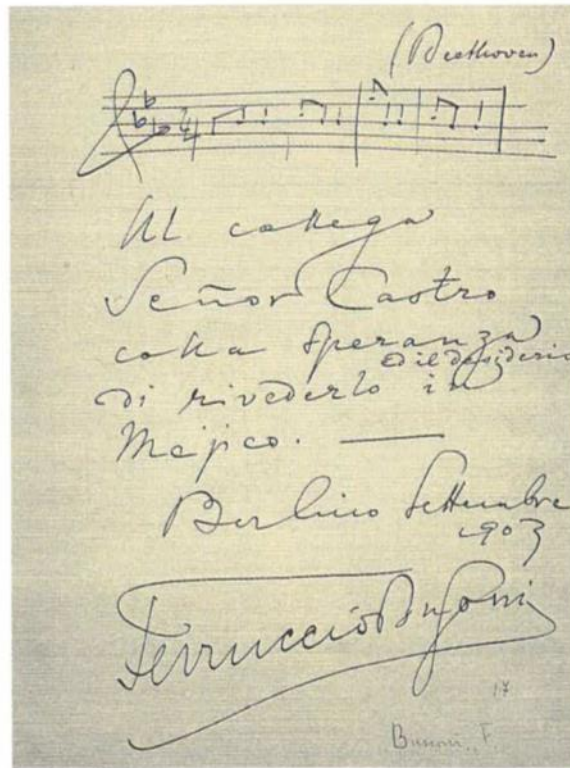 (Beethoven)
Al collega
Señor Castro
colla speranza
ed il desiderio
di rivederlo in
Mejico. —
Berlino Settembre
1903
Ferruccio Busoni
17
Busoni, F.